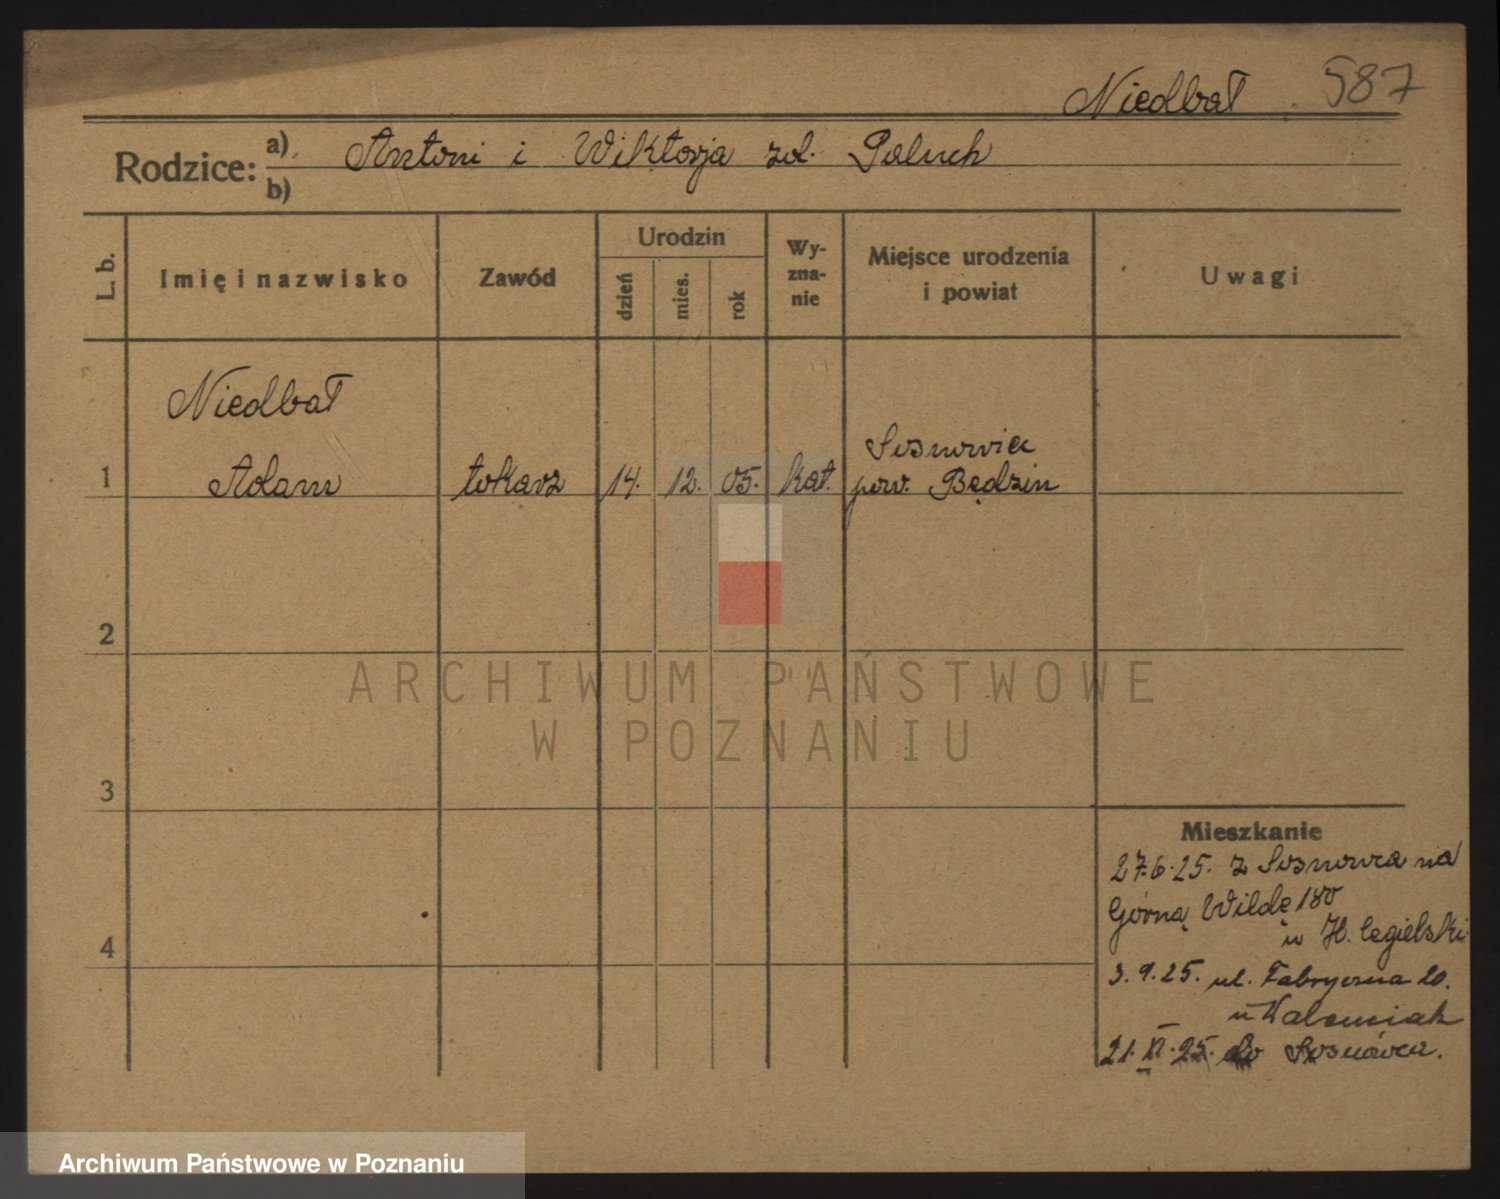 Niedbał 587
Rodzice: a) Antoni i Wiktorja zd. Paluch
b)
L. b.
Imię i nazwisko
Zawód
Urodzin
dzień
mies.
rok
Wy-
zna-
nie
Miejsce urodzenia
i powiat
Uwagi
Niedbał
1 Adam tokarz 14. 12. 05. kat.
Sosnowiec
pow. Będzin
2
3
4
ARCHIWUM PAŃSTWOWE
W POZNANIU
Mieszkanie
27.6.25. z Sosnowca na
Górną Wildę 180
u H. Cegielski
3.9.25. ul. Fabryczna 20.
u
21.XI.25. do Sosnowca.
Archiwum Państwowe w Poznaniu